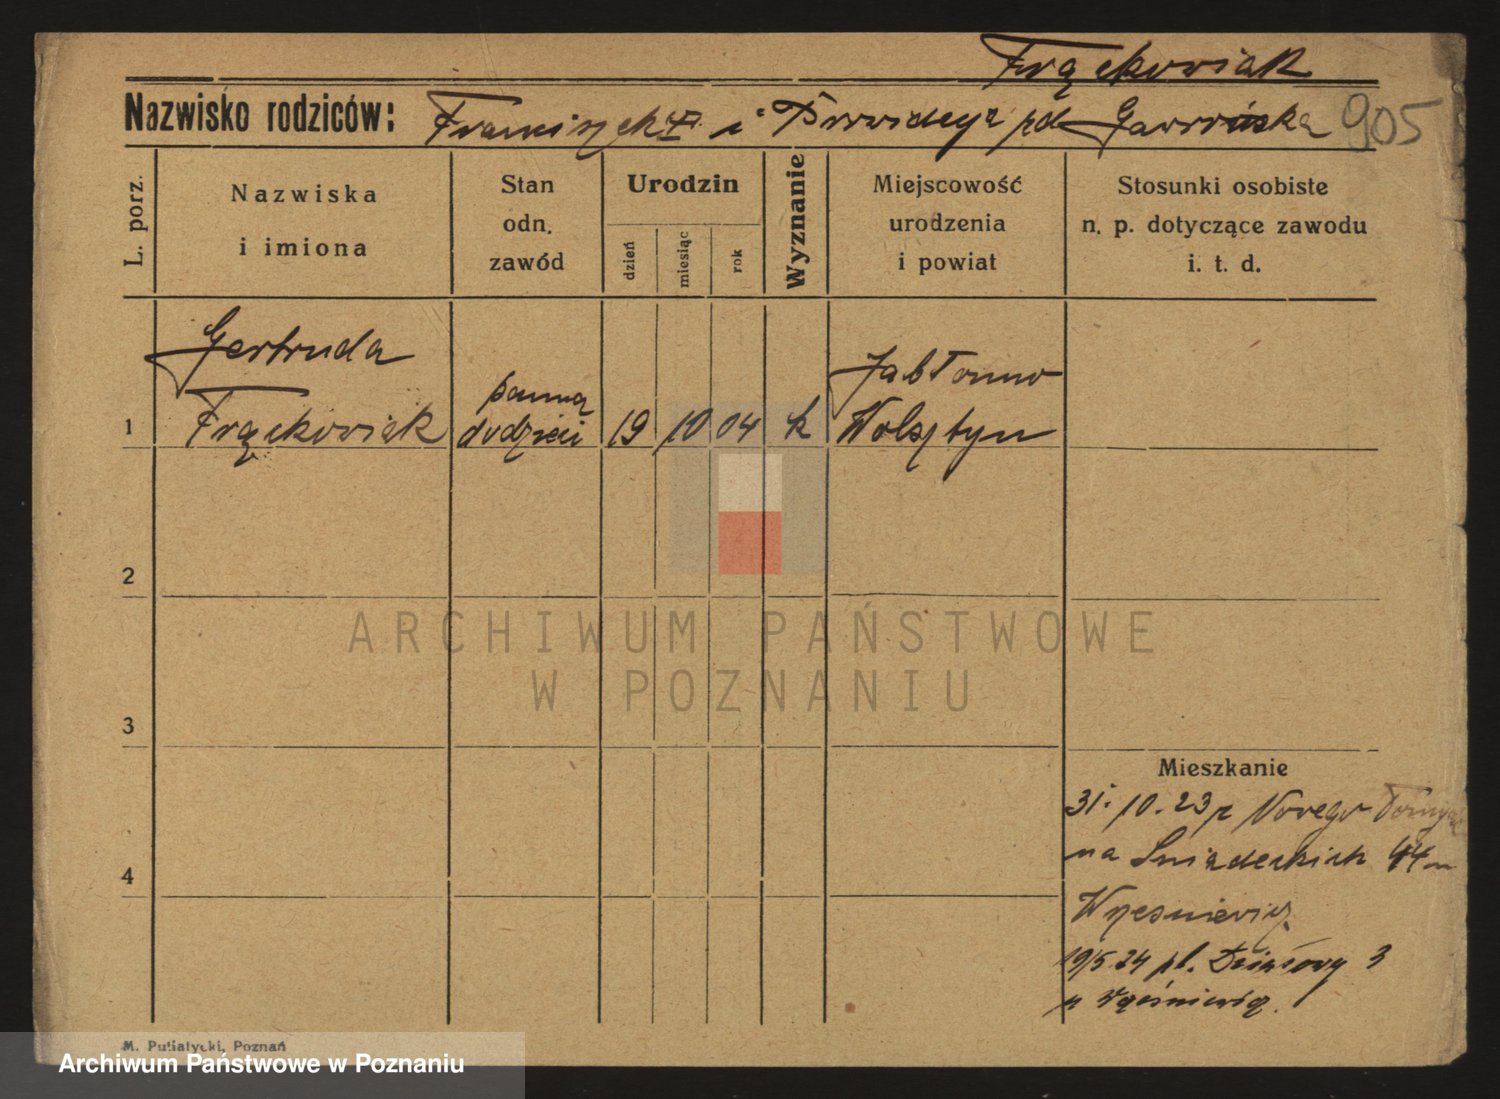 Frąckowiak
Nazwisko rodziców: Franciszek i z d Gawrońska 905
L. porz.
Nazwiska
i imiona
Stan
odn.
zawód
Urodzin
dzień
miesiąc
rok
Wyznanie
Miejscowość
urodzenia
i powiat
Stosunki osobiste
n. p. dotyczące zawodu
i. t. d.
Gertruda
Frąckowiak
panna
1
19 10 04 k
Jabłonno
Wolsztyn
2
ARCHIWUM PAŃSTWOWE
W POZNANIU
3
Mieszkanie
31. 10. 23 z Nowego Tomyśla
na Śniadeckich 44 u
4
19/5.24 pl. Działowy 3
u
M. Putiatycki, Poznań
Archiwum Państwowe w Poznaniu